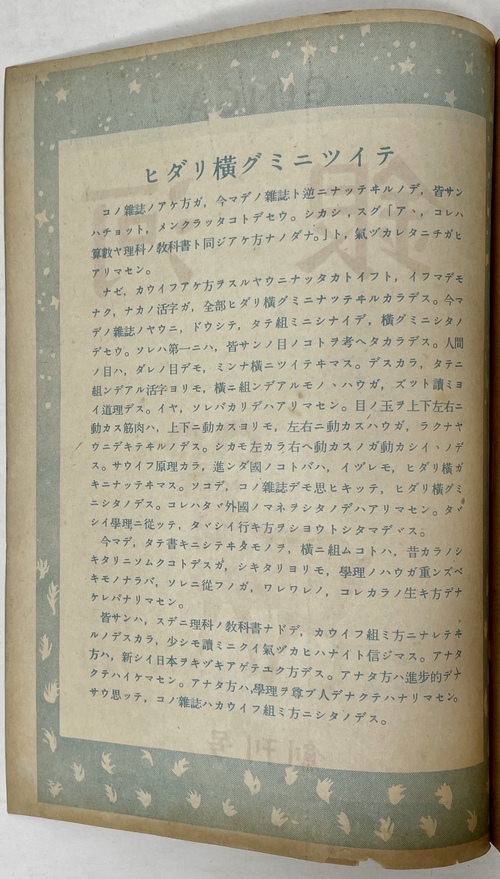 ヒダリ橫グミニツイテ
コノ雜誌ノアケ方ガ，今マデノ雜誌ト逆ニナッテヰルノデ，皆サン
ハチョット，メンクラッタコトデセウ。シカシ，スグ「ア丶，コレハ
算數ヤ理科ノ敎科書ト同ジアケ方ナノダナ。」ト，氣ヅカレタニチガヒ
アリマセン。
ナゼ，カウイフアケ方ヲスルヤウニナッタカトイフト，イフマデモ
ナク，ナカノ活字ガ，全部ヒダリ橫グミニナッテヰルカラデス。今マ
デノ雜誌ノヤウニ，ドウシテ，タテ組ミニシナイデ，橫グミニシタノ
デセウ。ソレハ第一ニハ，皆サンノ目ノコトヲ考ヘタカラデス。人間
ノ目ハ，ダレノ目デモ，ミンナ橫ニツイテヰマス。デスカラ，タテニ
組ンデアル活字ヨリモ，橫ニ組ンデアルモノヽハウガ，ズット讀ミヨ
イ道理デス。イヤ，ソレバカリデハアリマセン。目ノ玉ヲ上下左右ニ
動カス筋肉ハ，上下ニ動カスヨリモ，左右ニ動カスハウガ，ラクナヤ
ウニデキテヰルノデス。シカモ左カラ右ヘ動カスノガ動カシイヽノデ
ス。サウイフ原理カラ，進ンダ國ノコトバハ，イヅレモ，ヒダリ橫ガ
キニナッテヰマス。ソコデ，コノ雜誌デモ思ヒキッテ，ヒダリ橫グミ
ニシタノデス。コレハタヾ外國ノマネヲシタノデハアリマセン。タヾ
シイ學理ニ從ッテ，タヾシイ行キ方ヲショウトシタマデヾス。
今マデ，タテ書キニシテヰタモノヲ，橫ニ組ムコトハ，昔カラノシ
キタリニソムクコトデスガ，シキタリヨリモ，學理ノハウガ重ンズベ
キモノナラバ，ソレニ從フノガ，ワレワレノ，コレカラノ生キ方デナ
ケレバナリマセン。
皆サンハ，スデニ理科ノ敎科書ナドデ，カウイフ組ミ方ニナレテヰ
ルノデスカラ，少シモ讀ミニクイ氣ヅカヒハナイト信ジマス。アナタ
方ハ，新シイ日本ヲキヅキアゲテユク方デス。アナタ方ハ進步的デナ
クテハイケマセン。アナタ方ハ，學理ヲ尊ブ人デナクテハナリマセン。
サウ思ッテ，コノ雜誌ハカウイフ組ミ方ニシタノデス。